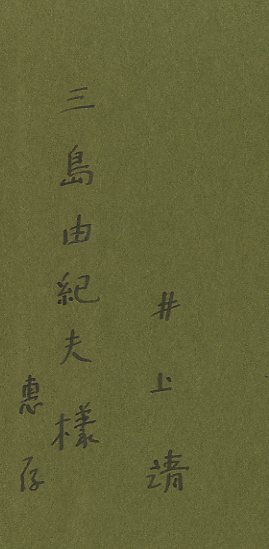 井上靖
三島由紀夫様
惠存